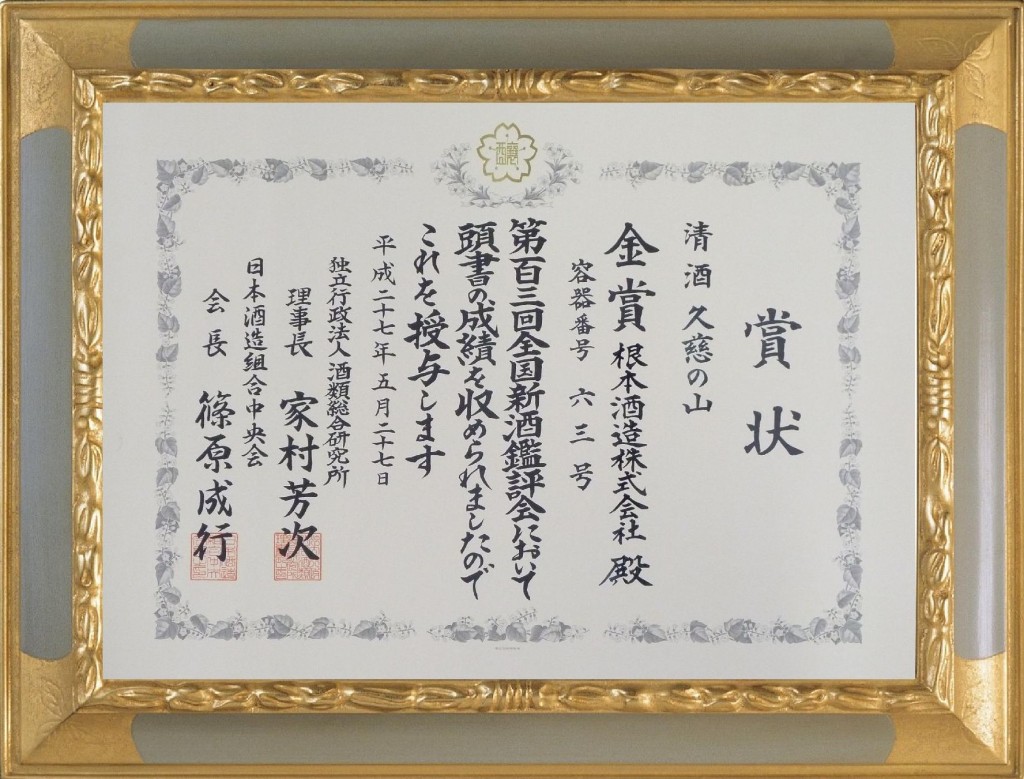 醸
賞状
清酒 久慈の山
金賞 根本酒造株式会社 殿
容器番号 六三号
第百三回全国新酒鑑評会において
頭書の成績を収められましたので
これを授与します
平成二十七年五月二十七日
独立行政法人酒類総合研究所
理事長 家村芳次
日本酒造組合中央会
会長 篠原成行